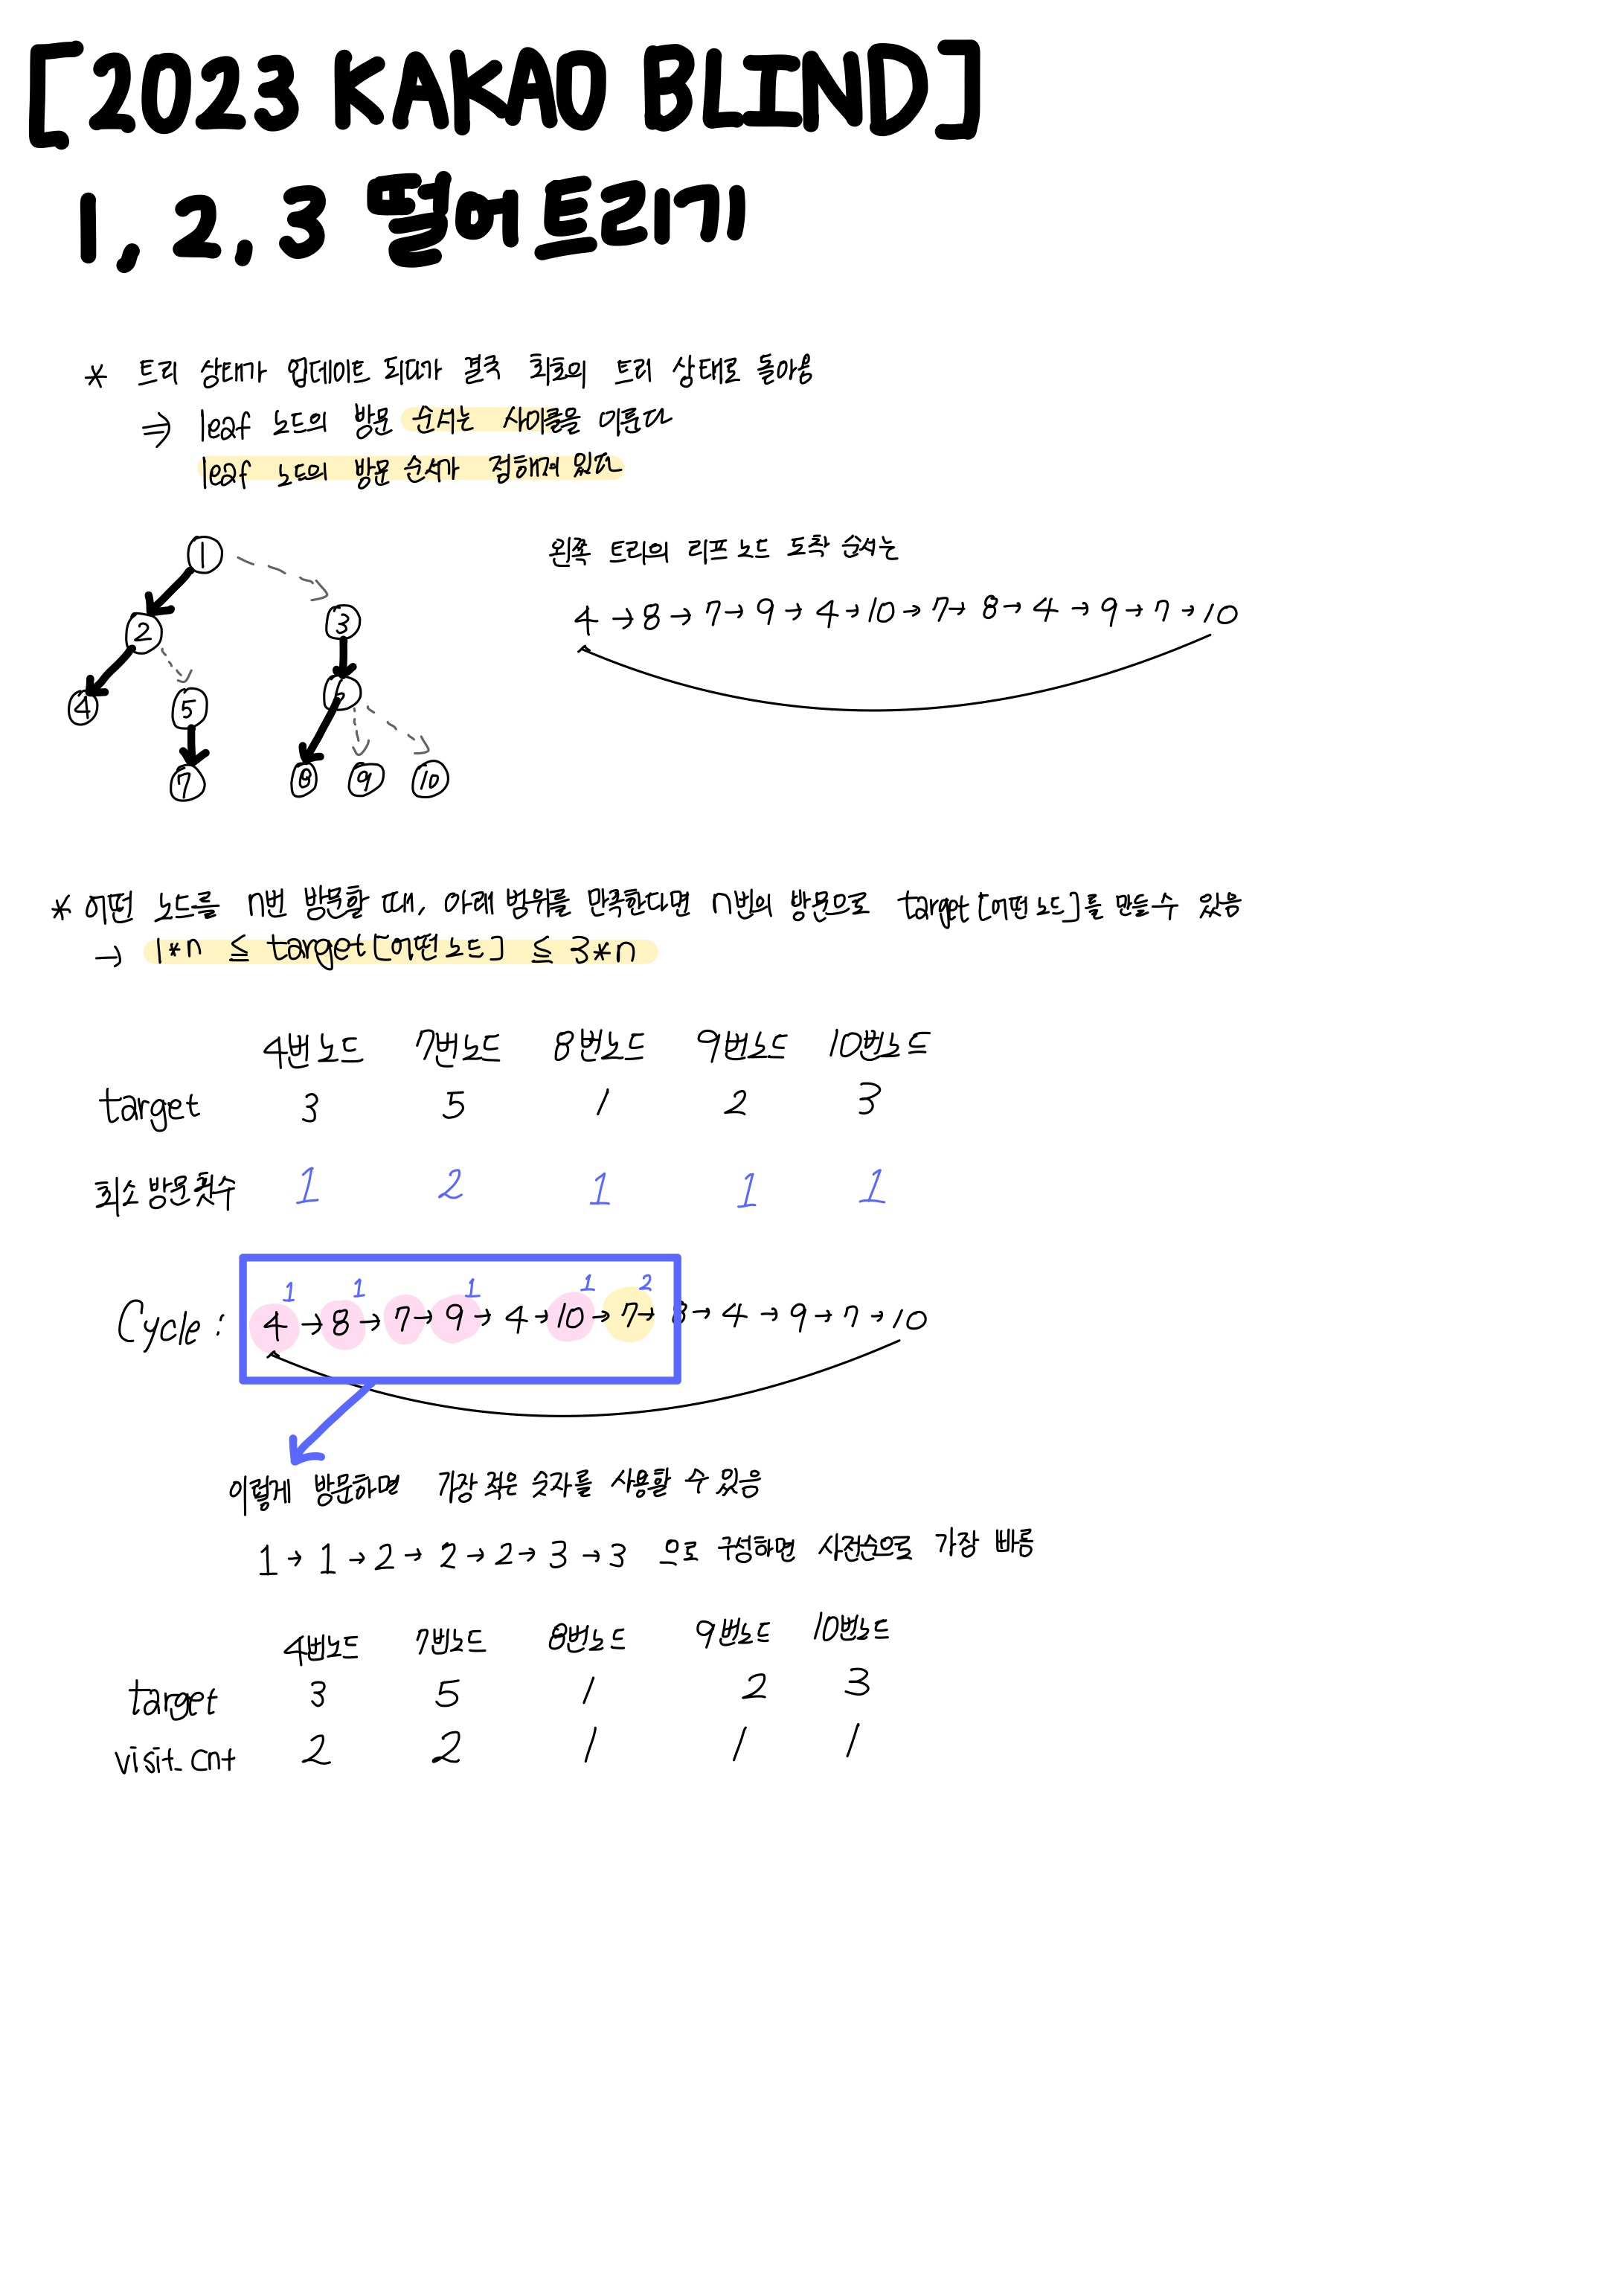 [2023 KAKAO BLIND]
1, 2, 3 떨어트리기
* 트리 상태가 업데이트 되다가 결국 최초의 트리 상태로 돌아옴
⇒ leaf 노드의 방문 순서는 사이클을 이룬다
leaf 노드의 방문 순서가 정해져 있다
왼쪽 트리의 리프 노드 도착 순서는
4 → 8 → 7 → 9 → 4 → 10 → 7 → 8 → 4 → 9 → 7 → 10
1
2 3
4 5
7 8 9 10
* 어떤 노드를 n번 방문할 때, 아래 범위를 만족한다면 n번의 방문으로 target[어떤 노드]를 만들 수 있음
→ 1*n ≦ target[어떤 노드] ≦ 3*n
4번 노드 7번노드 8번노드 9번노드 10번노드
target 3 5 1 2 3
최소 방문횟수 1 2 1 1 1
1 1 1 1 2
Cycle : 4 → 8 → 7 → 9 → 4 → 10 → 7 → 8 → 4 → 9 → 7 → 10
이렇게 방문하면 가장 적은 숫자를 사용할 수 있음
1 → 1 → 2 → 2 → 2 → 3 → 3 으로 구성하면 사전순으로 가장 빠름
4번노드 7번노드 8번노드 9번노드 10번노드
target 3 5 1 2 3
visit_cnt 2 2 1 1 1